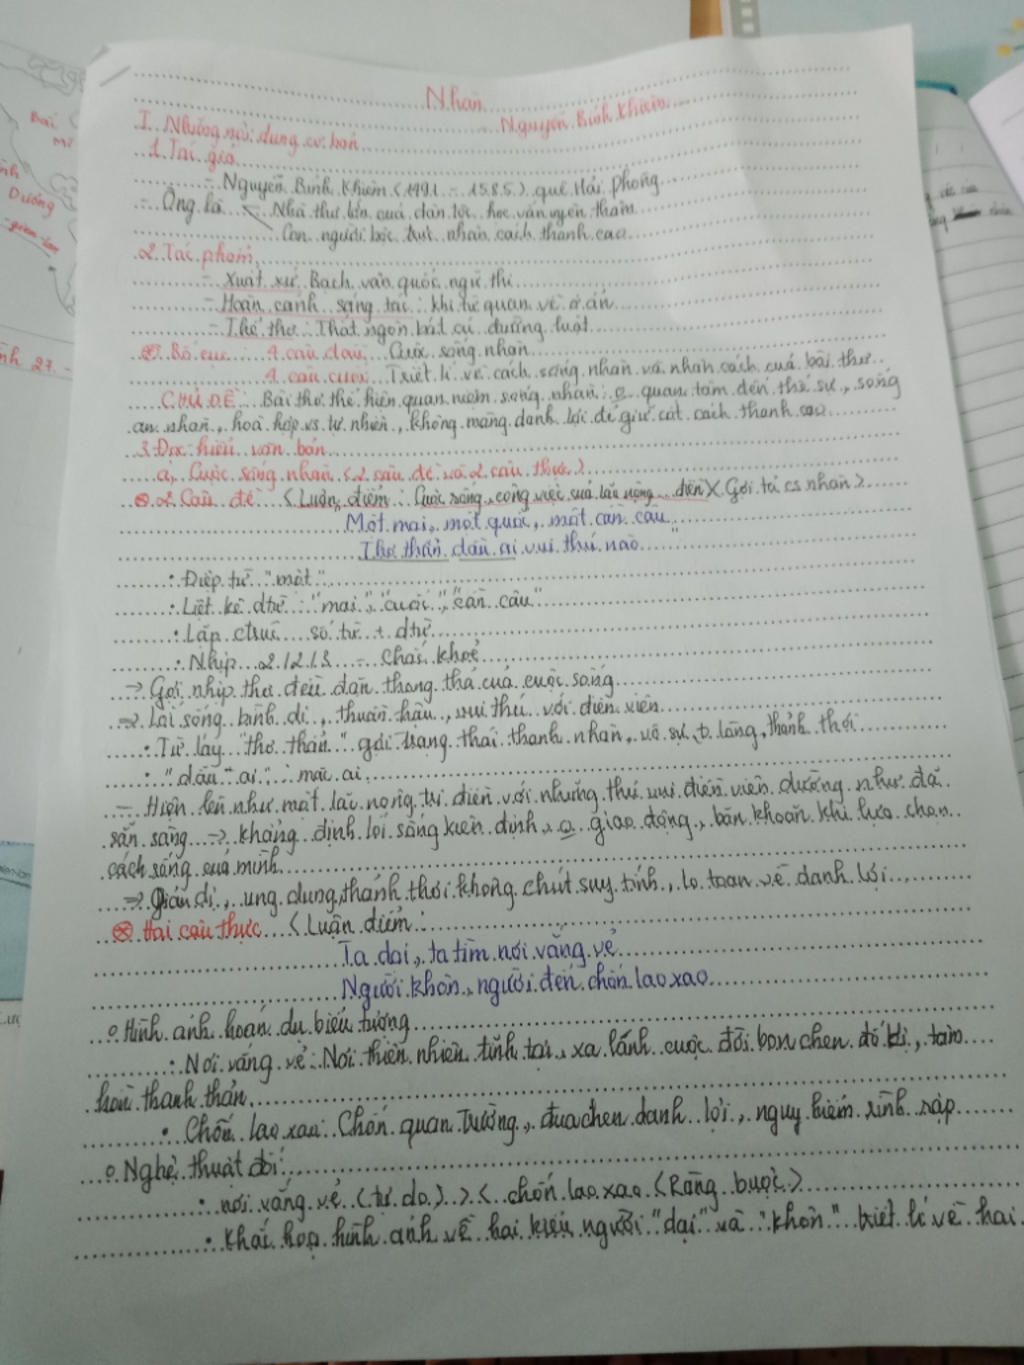 Nhàn
Nguyễn Bỉnh Khiêm
I. Những nội dung cơ bản
1. Tác giả
- Nguyễn Bỉnh Khiêm (1491 - 1585) quê Hải Phòng
- Ông là - Nhà thơ lớn của dân tộc, học vấn uyên thâm
Con người bộc trực, nhân cách thanh cao
2. Tác phẩm
- Xuất xứ: Bạch vân quốc ngữ thi
- Hoàn cảnh sáng tác: khi từ quan về ở ẩn
- Thể thơ: Thất ngôn bát cú đường luật
Bố cục: 4 câu đầu: Cuộc sống nhàn
4 câu cuối: Triết lí về cách sống nhàn và nhân cách của bài thơ
CHỦ ĐỀ: Bài thơ thể hiện quan niệm sống nhàn: o quan tâm đến thế sự, sống
an nhàn, hoà hợp vs tự nhiên, không màng danh lợi để giữ cốt cách thanh cao
3. Đọc hiểu văn bản
a, Cuộc sống nhàn (2 câu đề và 2 câu thực)
2 Câu đề (Luận điểm: Cuộc sống, công việc của lão nông điền X Gợi tả cs nhàn)
Một mai, một quốc, một cần câu
Thơ thẩn dầu ai vui thú nào
: Điệp từ "một"
: Liệt kê dtừ: "mai", "cuốc", "cần câu"
: Lặp ctrúc số từ + dtừ
: Nhịp 2/2/3 - Chắc khoẻ
-> Gợi nhịp thơ đều đặn thong thả của cuộc sống
=> Lối sống bình dị, thuần hậu, vui thú với điền viên
: Từ láy "thơ thẩn" gợi trạng thái thanh nhàn, vô sự, o lòng, thảnh thơi
: "dầu ai": mặc ai
- Hiện lên như một lão nông tri điền với những thú vui điền viên dường như đã
sẵn sàng -> khẳng định lối sống kiên định, o giao động, băn khoăn khi lựa chọn
cách sống của mình
=> Giản dị, ung dung, thảnh thơi không chút suy tính, lo toan về danh lợi
Hai câu thực (Luận điểm:
Ta dại, ta tìm nơi vắng vẻ
Người khôn, người đến chốn lao xao
o Hình ảnh hoán dụ biểu tượng
: Nơi vắng vẻ: Nơi thiên nhiên tĩnh tại, xa lánh cuộc đời bon chen đố kị, tâm
hồn thanh thản
: Chốn lao xao: Chốn quan trường, đua chen danh lợi, nguy hiểm rình rập
o Nghệ thuật đối:
: nơi vắng vẻ (tự do) >< chốn lao xao (Ràng buộc)
: Khái hoạ hình ảnh về hai kiểu người "dại" và "khôn" triết lí về hai